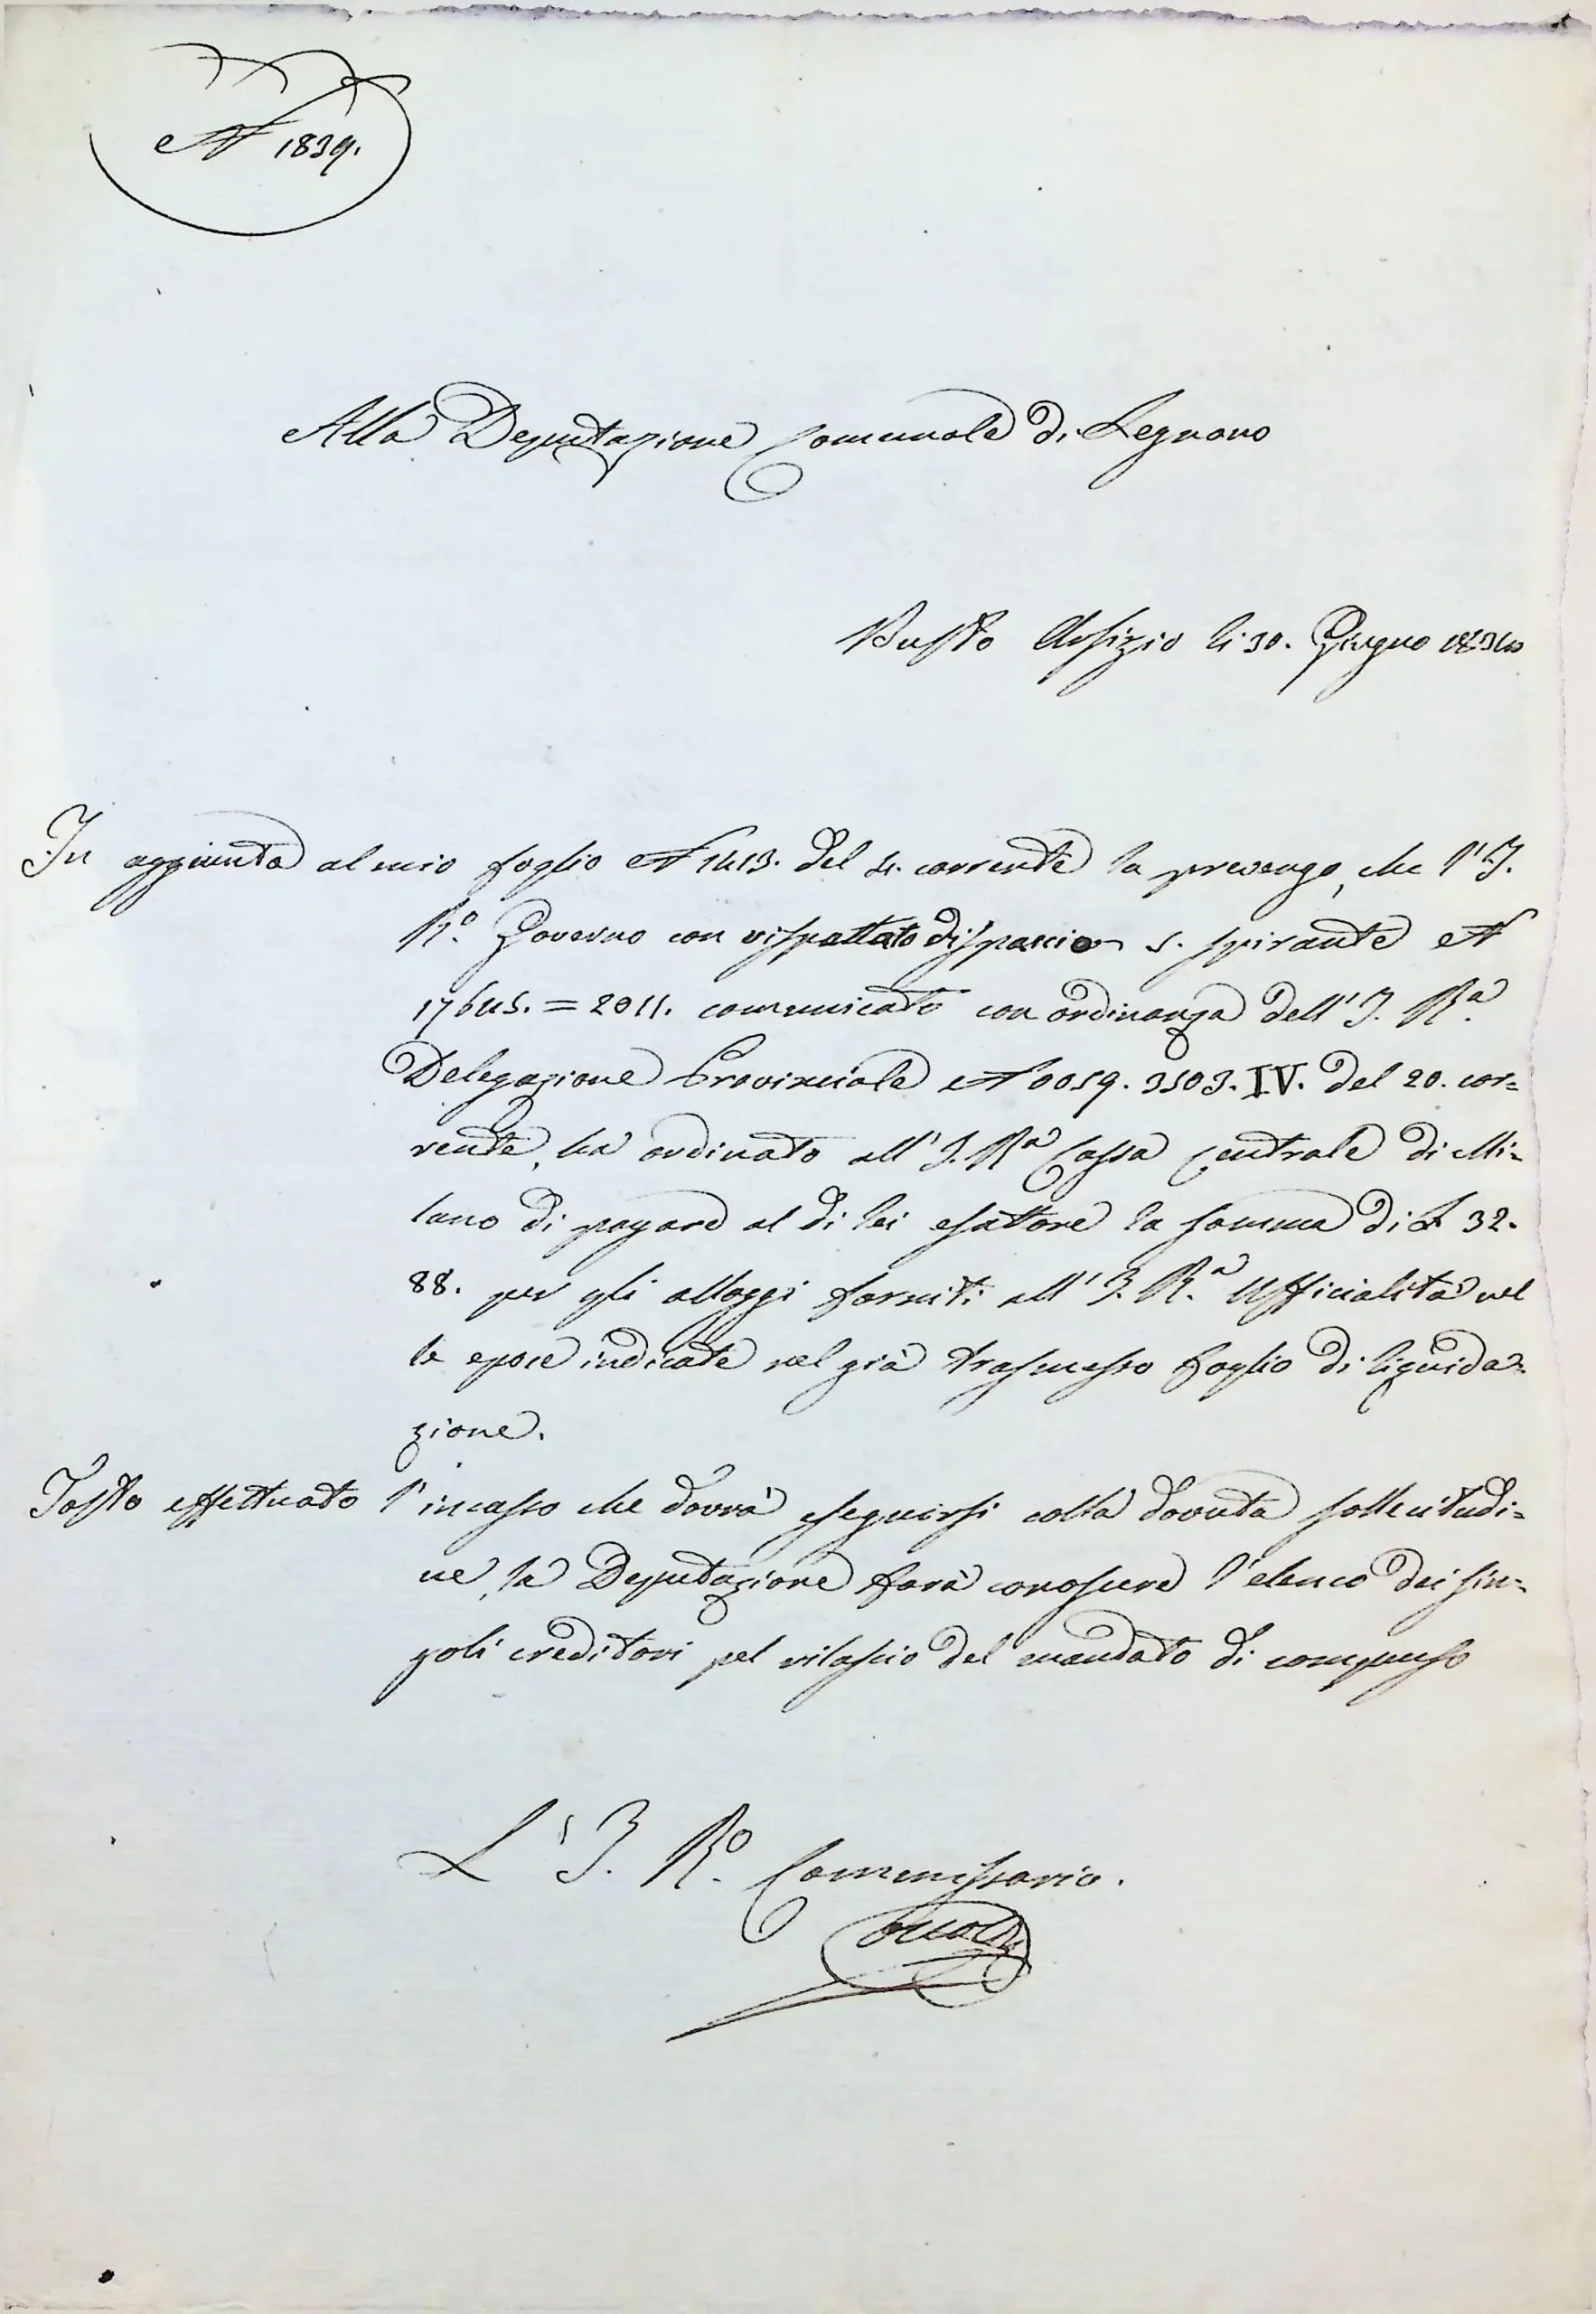 N 1839.
Alla Deputazione Comunale di Legnano
Busto Arsizio li 30. Giugno 1834
In aggiunta al mio foglio N 1413. del 4. corrente la prevengo, che l'I.
R.º Governo con rispettato dispaccio 5. spirante N
17645. = 2011. comunicato con ordinanza dell'I. R.ª
Delegazione Provinciale N 0059. 3503. IV. del 20. cor=
rente, ha ordinato all'I. Rª Cassa Centrale di Mi=
lano di pagare al di lei esattore la somma di L 32.
88. per gli alloggi forniti all'I. R.ª Ufficialità nel
le epoce indicate nel già trasmesso foglio di liquida=
zione.
Tosto effettuato l'incasso che dovrà eseguirsi colla dovuta sollecitudi=
ne, la Deputazione farà conoscere l'elenco dei sin=
goli creditori pel rilascio del mandato di compenso
L'I. R.º Commissario.